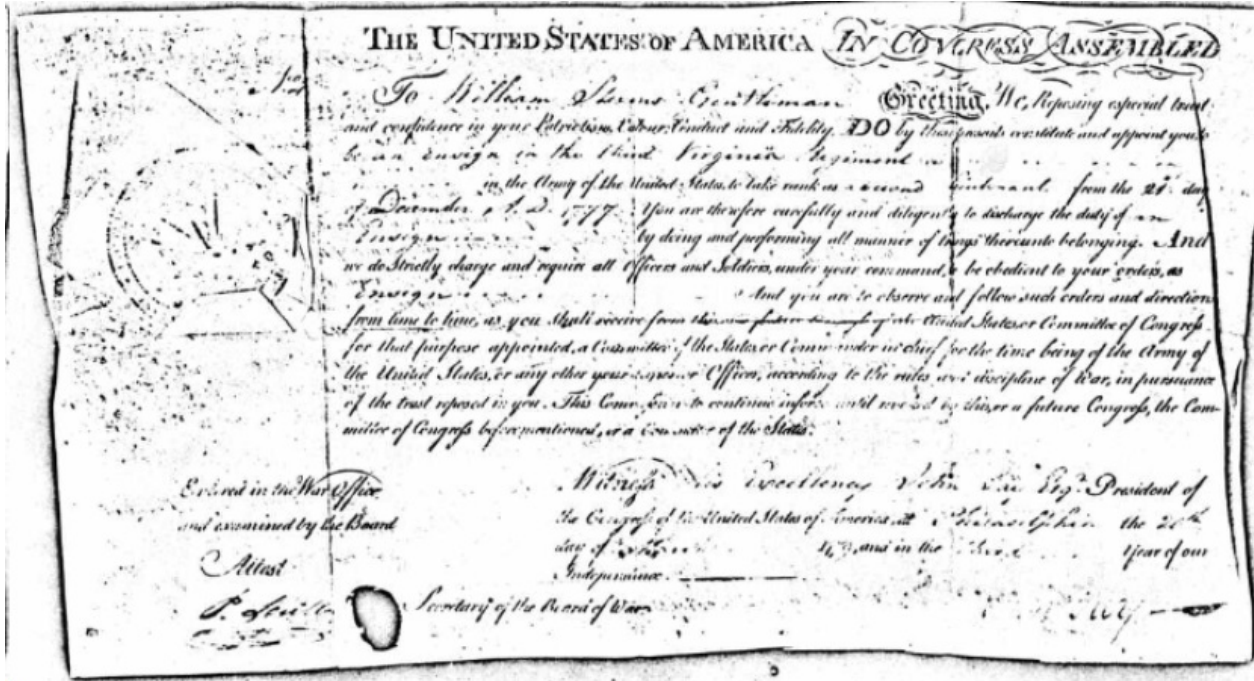 THE UNITED STATES OF AMERICA IN CONGRESS ASSEMBLED
To William Gentleman Greeting. We, Reposing especial trust
and confidence in your Patriotism, Valour, Conduct and Fidelity, DO by these presents constitute and appoint you to
be an Ensign in the third Virginia Regiment
in the Army of the United States, to take rank as second Lieutenant from the day
of December A.D. 1777 You are therefore carefully and diligently to discharge the duty of an
Ensign by doing and performing all manner of things thereunto belonging. And
we do Strictly charge and require all Officers and Soldiers, under your command, to be obedient to your orders, as
Ensign And you are to observe and follow such orders and direction
from time to time, as you shall receive from this or a future Congress of the United States, or Committee of Congress
for that purpose appointed, a Committee of the States, or Commander in chief for the time being of the Army of
the United States, or any other your superior Officer, according to the rules and discipline of War, in pursuance
of the trust reposed in you. This Commission to continue in force until revoked by this, or a future Congress, the Com-
mittee of Congress before mentioned, or a Committee of the States.
Entered in the War Office
and examined by the Board
Attest
Secretary of the Board of War
Witness his Excellency John Jay Esqr. President of
the Congress of the United States of America, at Philadelphia the 20th
day of and in the third Year of our
Independence.